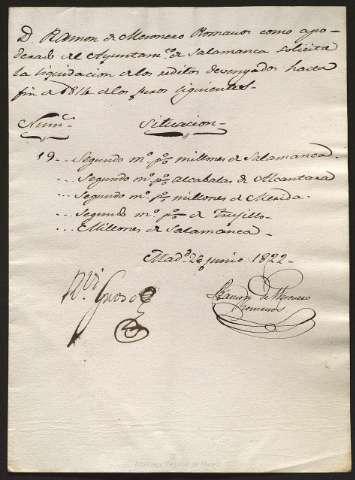 D. Ramon de Meronero Romanos como apo-
derado del Ayuntam.to de Salamanca solicita
la liquidacion de los réditos devengados hasta
fin de 1814 de los juros siguientes-
Num.s Situacion
19... Segundo m.o p.r % millones de Salamanca.
... Segundo m.o p.r % alcabalas de Alcantara
... Segundo m.o p.r % millones de Merida.
... Segundo m.o p.r % de Trujillo.
... Millones de Salamanca.
Mad.d 26 junio 1822.
Ramon de Meronero
Romanos